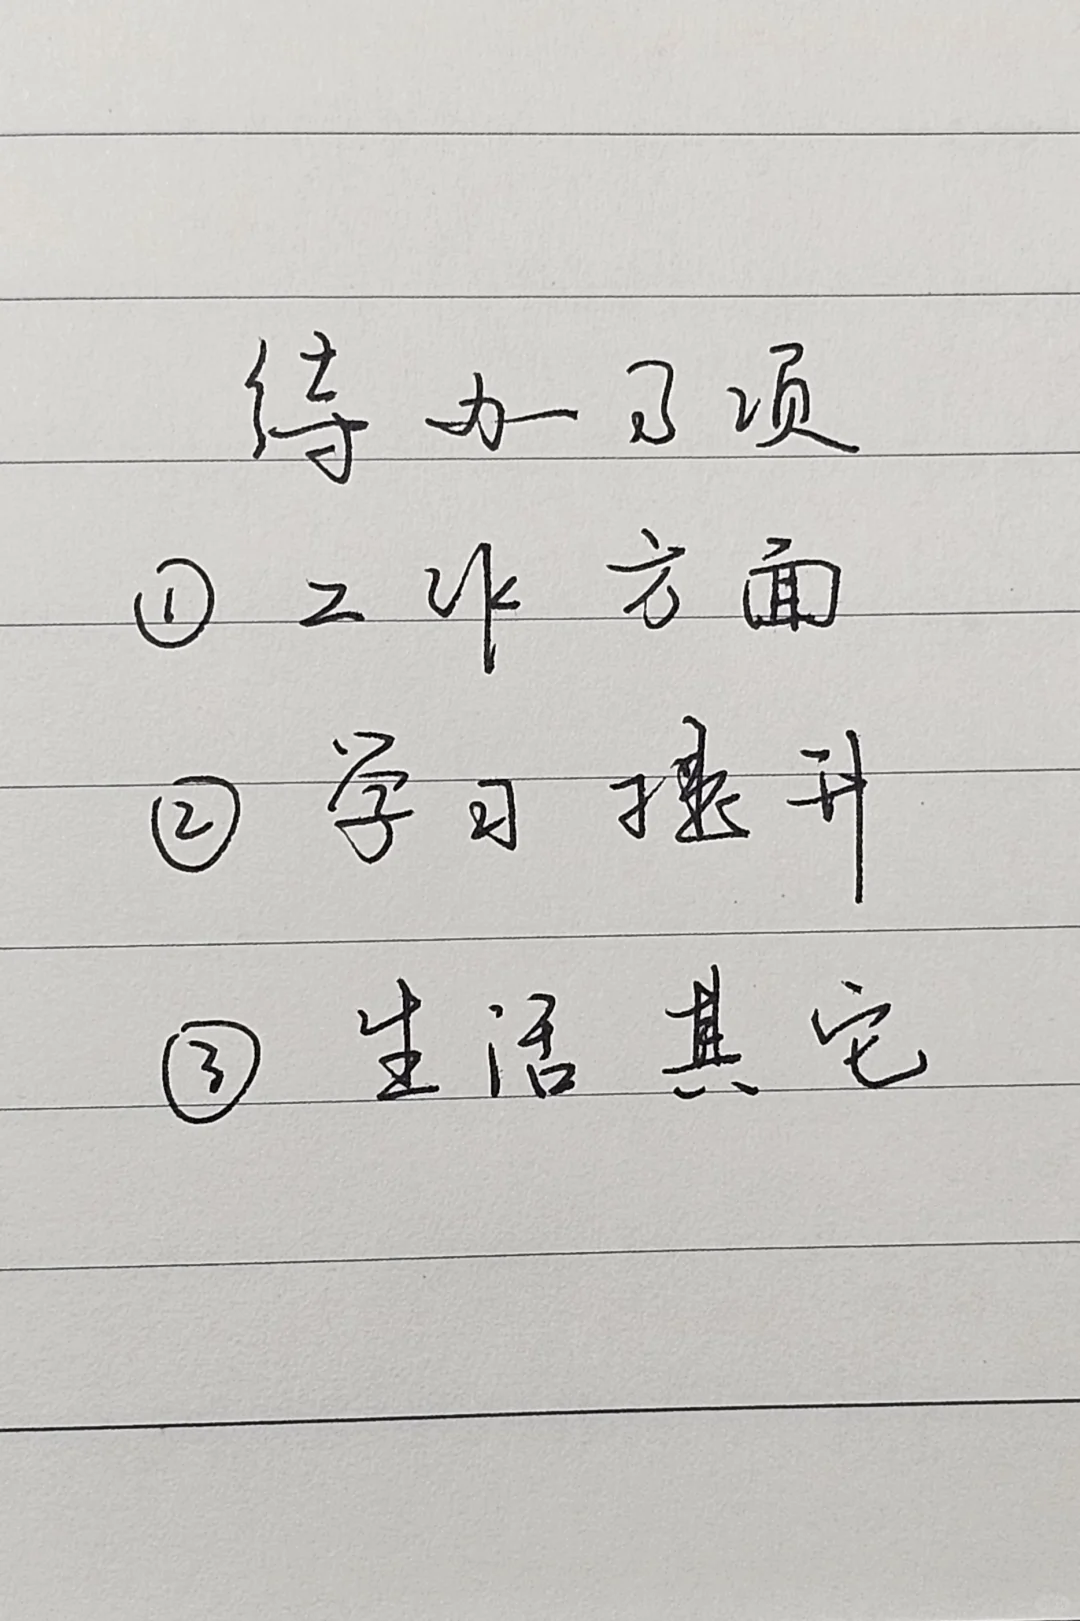 待办习项
① 工作方面
② 学习提升
③ 生活其它